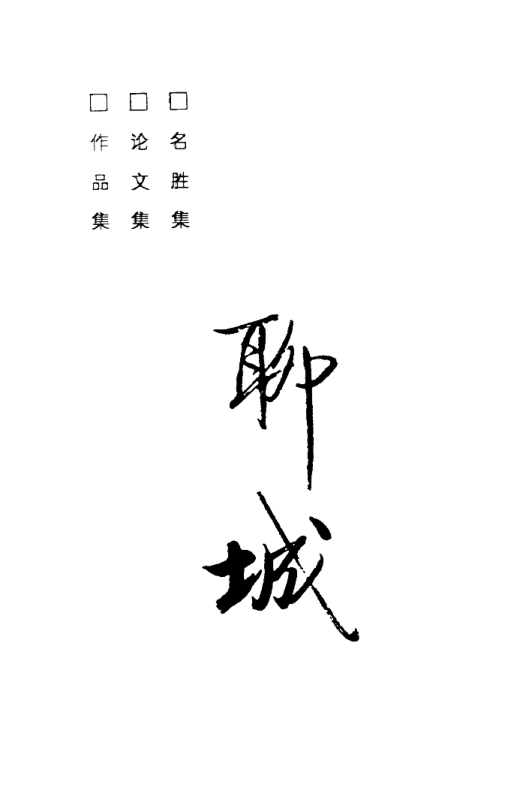 □名胜集
□论文集
□作品集
聊城